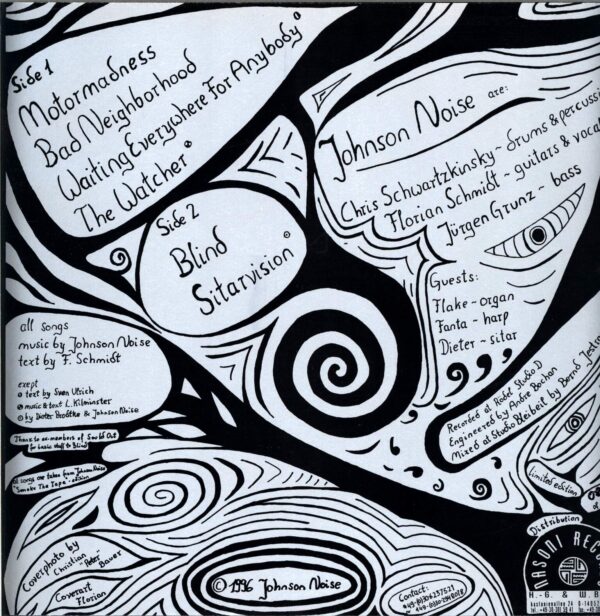 Side 1
Motormadness
Bad Neighborhood
Waiting Everywhere For Anybody
The Watcher
Side 2
Blind
Sitarvision
Johnson Noise are:
Chris Schwartzkinsky ~ drums & percussi
Florian Schmidt ~ guitars & vocal
Jürgen Grunz ~ bass
Guests:
Flake ~ organ
Fanta ~ harp
Dieter ~ sitar
all songs
music by Johnson Noise
text by F. Schmidt
exept
text by Sven Ulrich
music & text L. Kilminster
by Dieter & Johnson Noise
Thanx to ex-members of Sold Out
for basic stuff to Blind
all songs are taken from Johnson Noise
"Smoke The Tape"-edition
Recorded at Rödel Studio D
Engineered by Andre Bochan
Mixed at Studio Bleibeil by Bernd
limited edition
of
Distribution
NASONI RECO
H.-G. & W.B
Coverphoto by
Christian
"Peter"
Bauer
Coverart
Florian
© 1996 Johnson Noise
Contact: